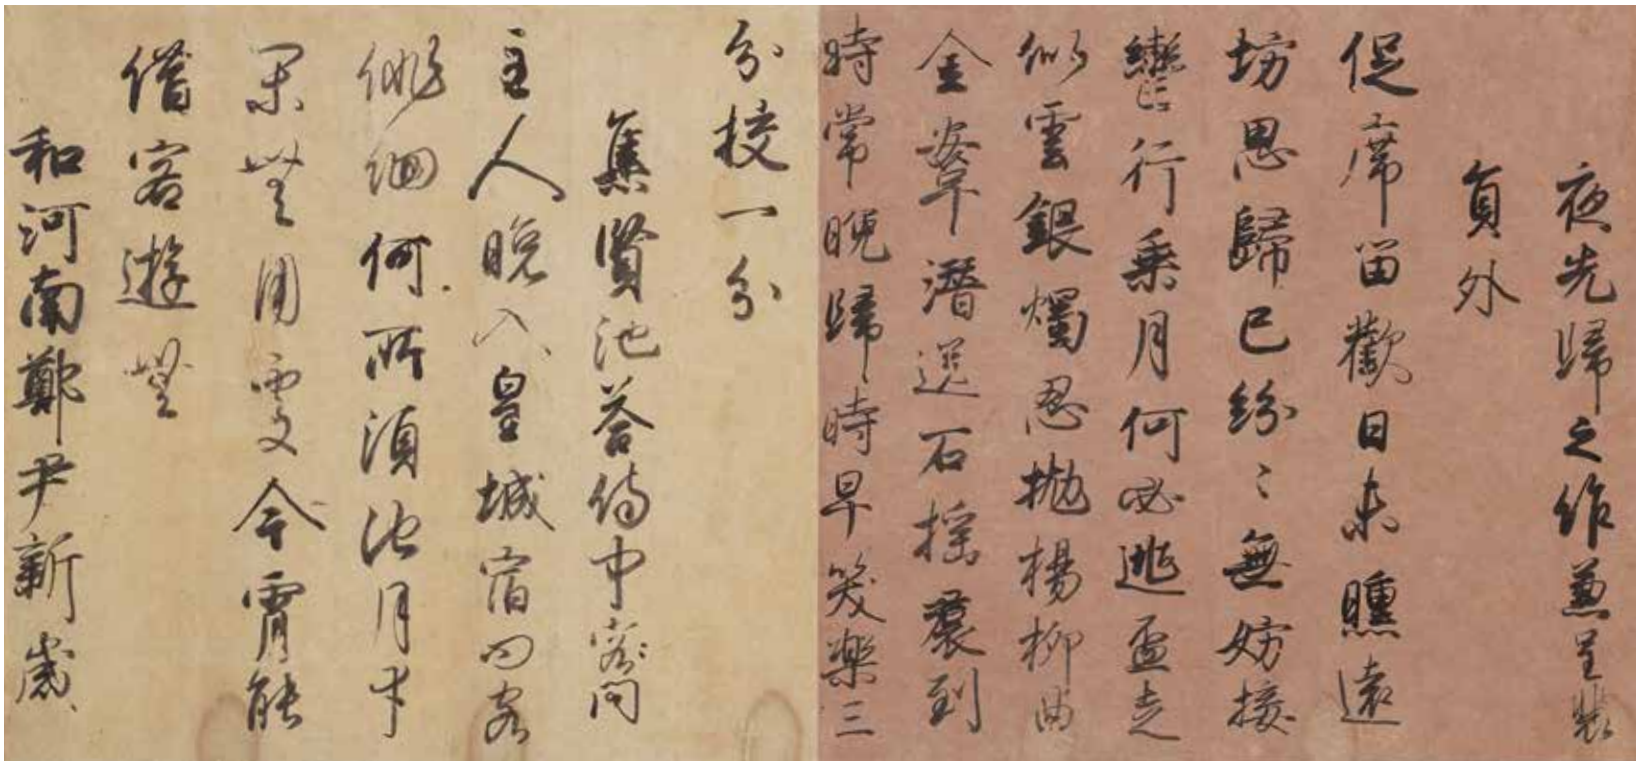 夜先歸之作兼呈裴
員外
促席留歡日未曛遠
坊思歸已紛〻無妨接
轡行乘月何必逃盃走
似雲銀燭忍拋楊柳曲
金鞍潛送石榴裠到
時常晚歸時早笑樂三
分校一分
集賢池荅侍中客問
主人晚入皇城宿問客
俳佪何所須池月幸
閑無用處今宵能
借客遊無
和河南鄭尹新歲